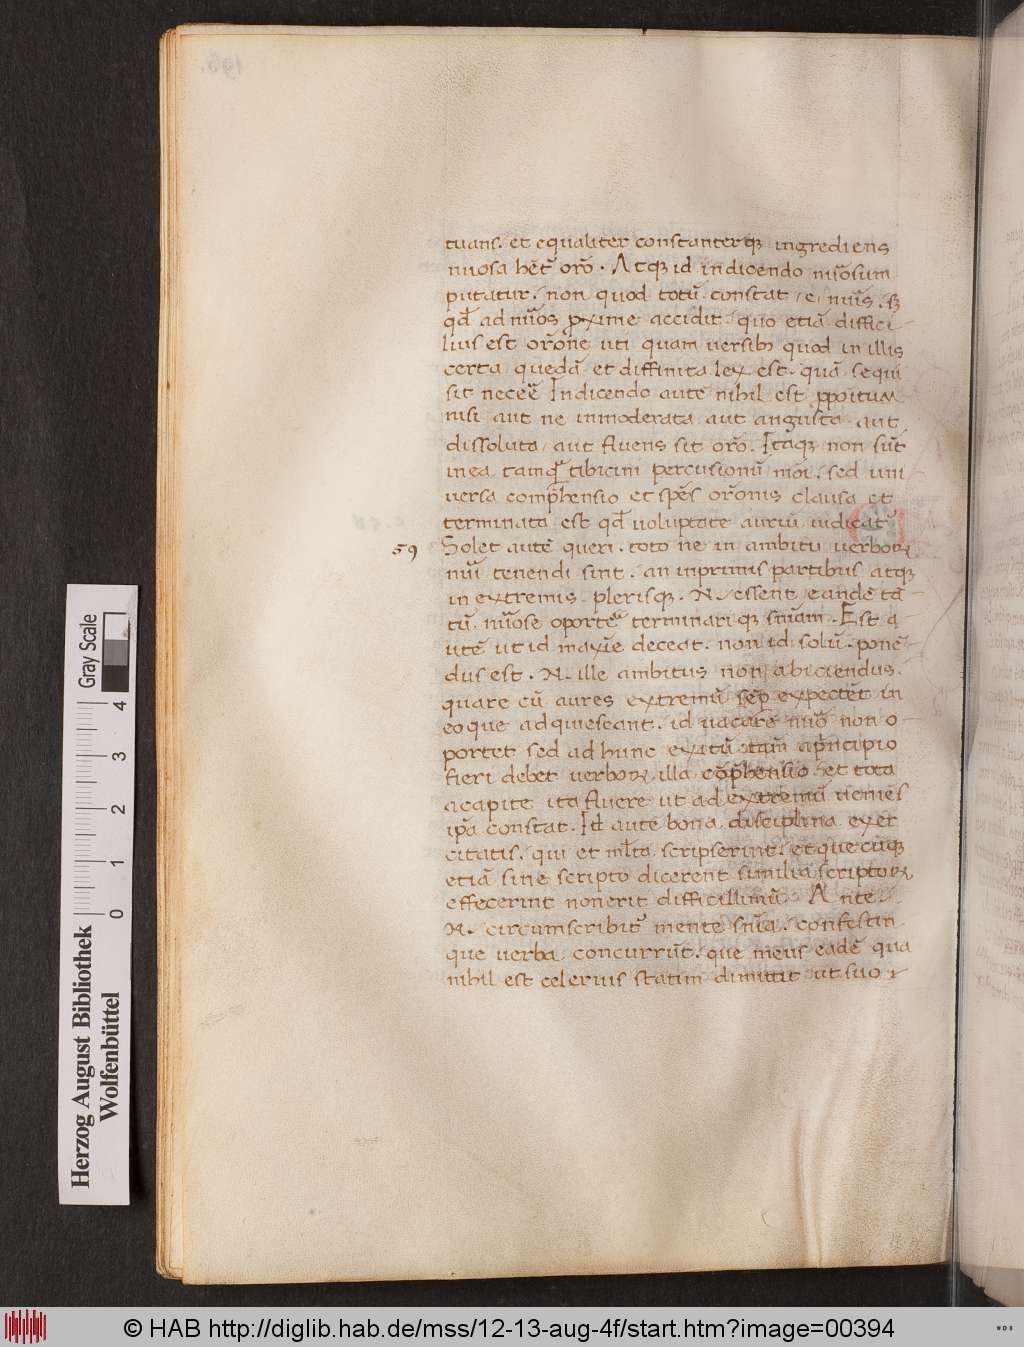 tuans. et equaliter constanterqꝫ ingrediens
nu̅osa het̅ or̅o. Atqꝫ id in dicendo nu̅osum
putatur. non quod totu̅ constat e nu̅is. sꝫ
qd̅ ad nu̅os pxime accidit. quo etia̅ diffici
lius est or̅one uti quam uersibꝫ quod in illis
certa queda̅ et diffinita lex est. qua̅ sequi
sit necee̅ In dicendo aute̅ nihil est ppoitum
nisi aut ne inmoderata aut angusta aut
dissoluta aut fluens sit or̅o. Itaqꝫ non su̅t
in ea tamq̅ tibicini percusionu̅ moi. sed uni
uersa comp̅hensio et spe̅s or̅onis clausa et
terminata est qd̅ uoluptate auriu̅ iudicat̅
59 Solet aute̅ queri. toto ne in ambitu uerboꝝ
nu̅i tenendi sint. an inprimis partibus atqꝫ
in extremis. plerisqꝫ. N. essent eande̅ ta̅
tu̅. nu̅ose oporte̅ terminariqꝫ sn̅iam. Est a
ute̅ ut id maxie̅ deceat. non id solu̅. pone̅
dus est. N. ille ambitus non abiciendus.
quare cu̅ aures extremu̅ sep̅ expecte̅t in
eoque adquiescant. id uacare nu̅o non o
portet sed ad hunc exitu̅ tam̅ ap̅ncipio
fieri debet uerboꝝ illa co̅p̅hensio et tota
acapite ita fluere ut ad extremu̅ ueniēs
ip̅a constat. Id aute̅ bona disciplina exer
citatis. qui et ml̅ta scripserint. et que cu̅qꝫ
etia̅ sine scripto dicerent similia scriptoꝝ
effecerint non erit difficillimu̅. Ante.
N. circumscribit̅ mente sn̅ia. confestin
que uerba concurru̅t. que mens eade̅ qua
nihil est celerius statim dimittit ut suo
Gray Scale
0 1 2 3 4
Herzog August Bibliothek
Wolfenbüttel
© HAB http://diglib.hab.de/mss/12-13-aug-4f/start.htm?image=00394